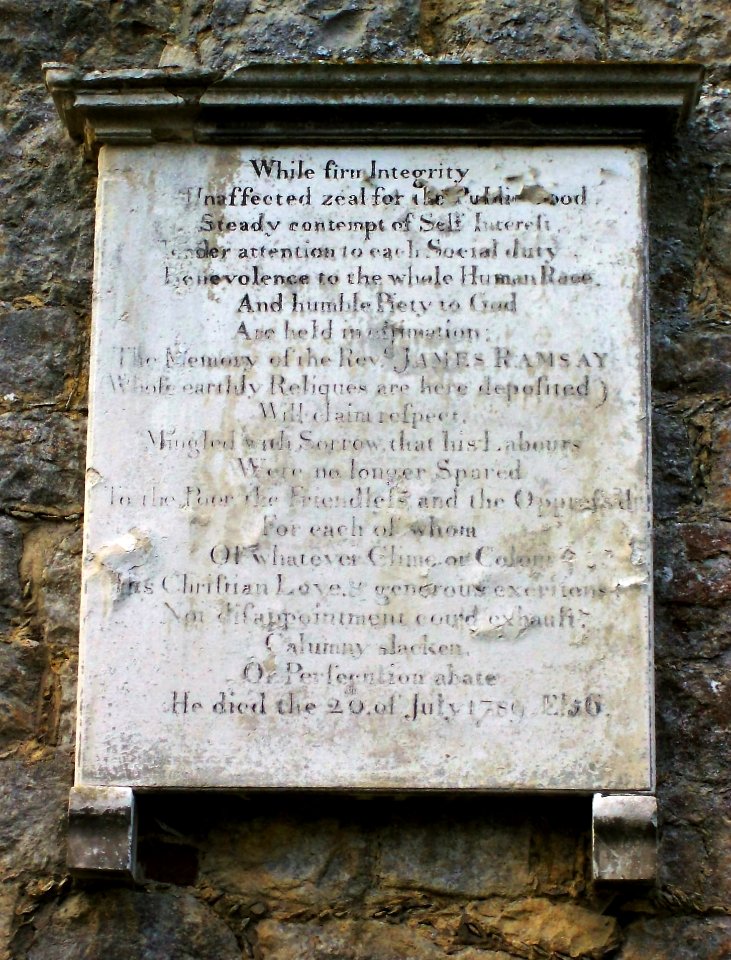 While firm Integrity
Unaffected zeal for the Public Good
Steady contempt of Self Intereſt,
Tender attention to each Social duty
Benevolence to the whole Human Race,
And humble Piety to God
Are held in eſtimation;
The Memory of the Revd. JAMES RAMSAY
(Whoſe earthly Reliques are here depoſited)
Will claim reſpect,
Mingled with Sorrow, that his Labours
Were no longer Spared
To the Poor the Friendleſs, and the Oppreſsd;
For each of whom
Of whatever Clime or Colour
His Chriſtian Love, & generous exertions
Nor diſappointment could exhauſt;
Calumny slacken,
Or Perſecution abate
He died the 20. of July 1789. Æt 56.